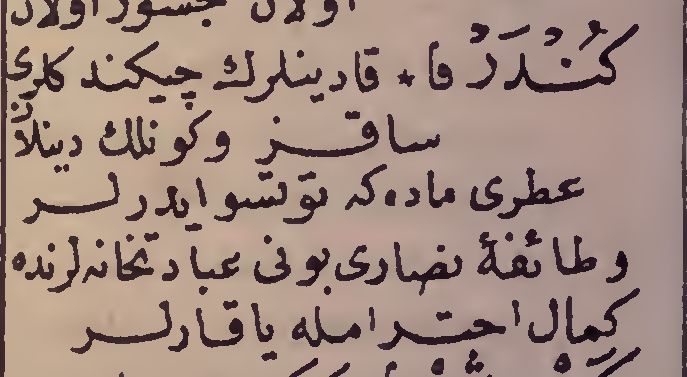 اولان جسور اولان
كُنْدُرْ فا ٭ قادينلرك چيكندكلرى
ساقز وكونلك دينلان
عطرى ماده كه توتسو ايدرلر
وطائفهٔ نصارى بونى عبادتخانه لرنده
كمال احترامله ياقارلر